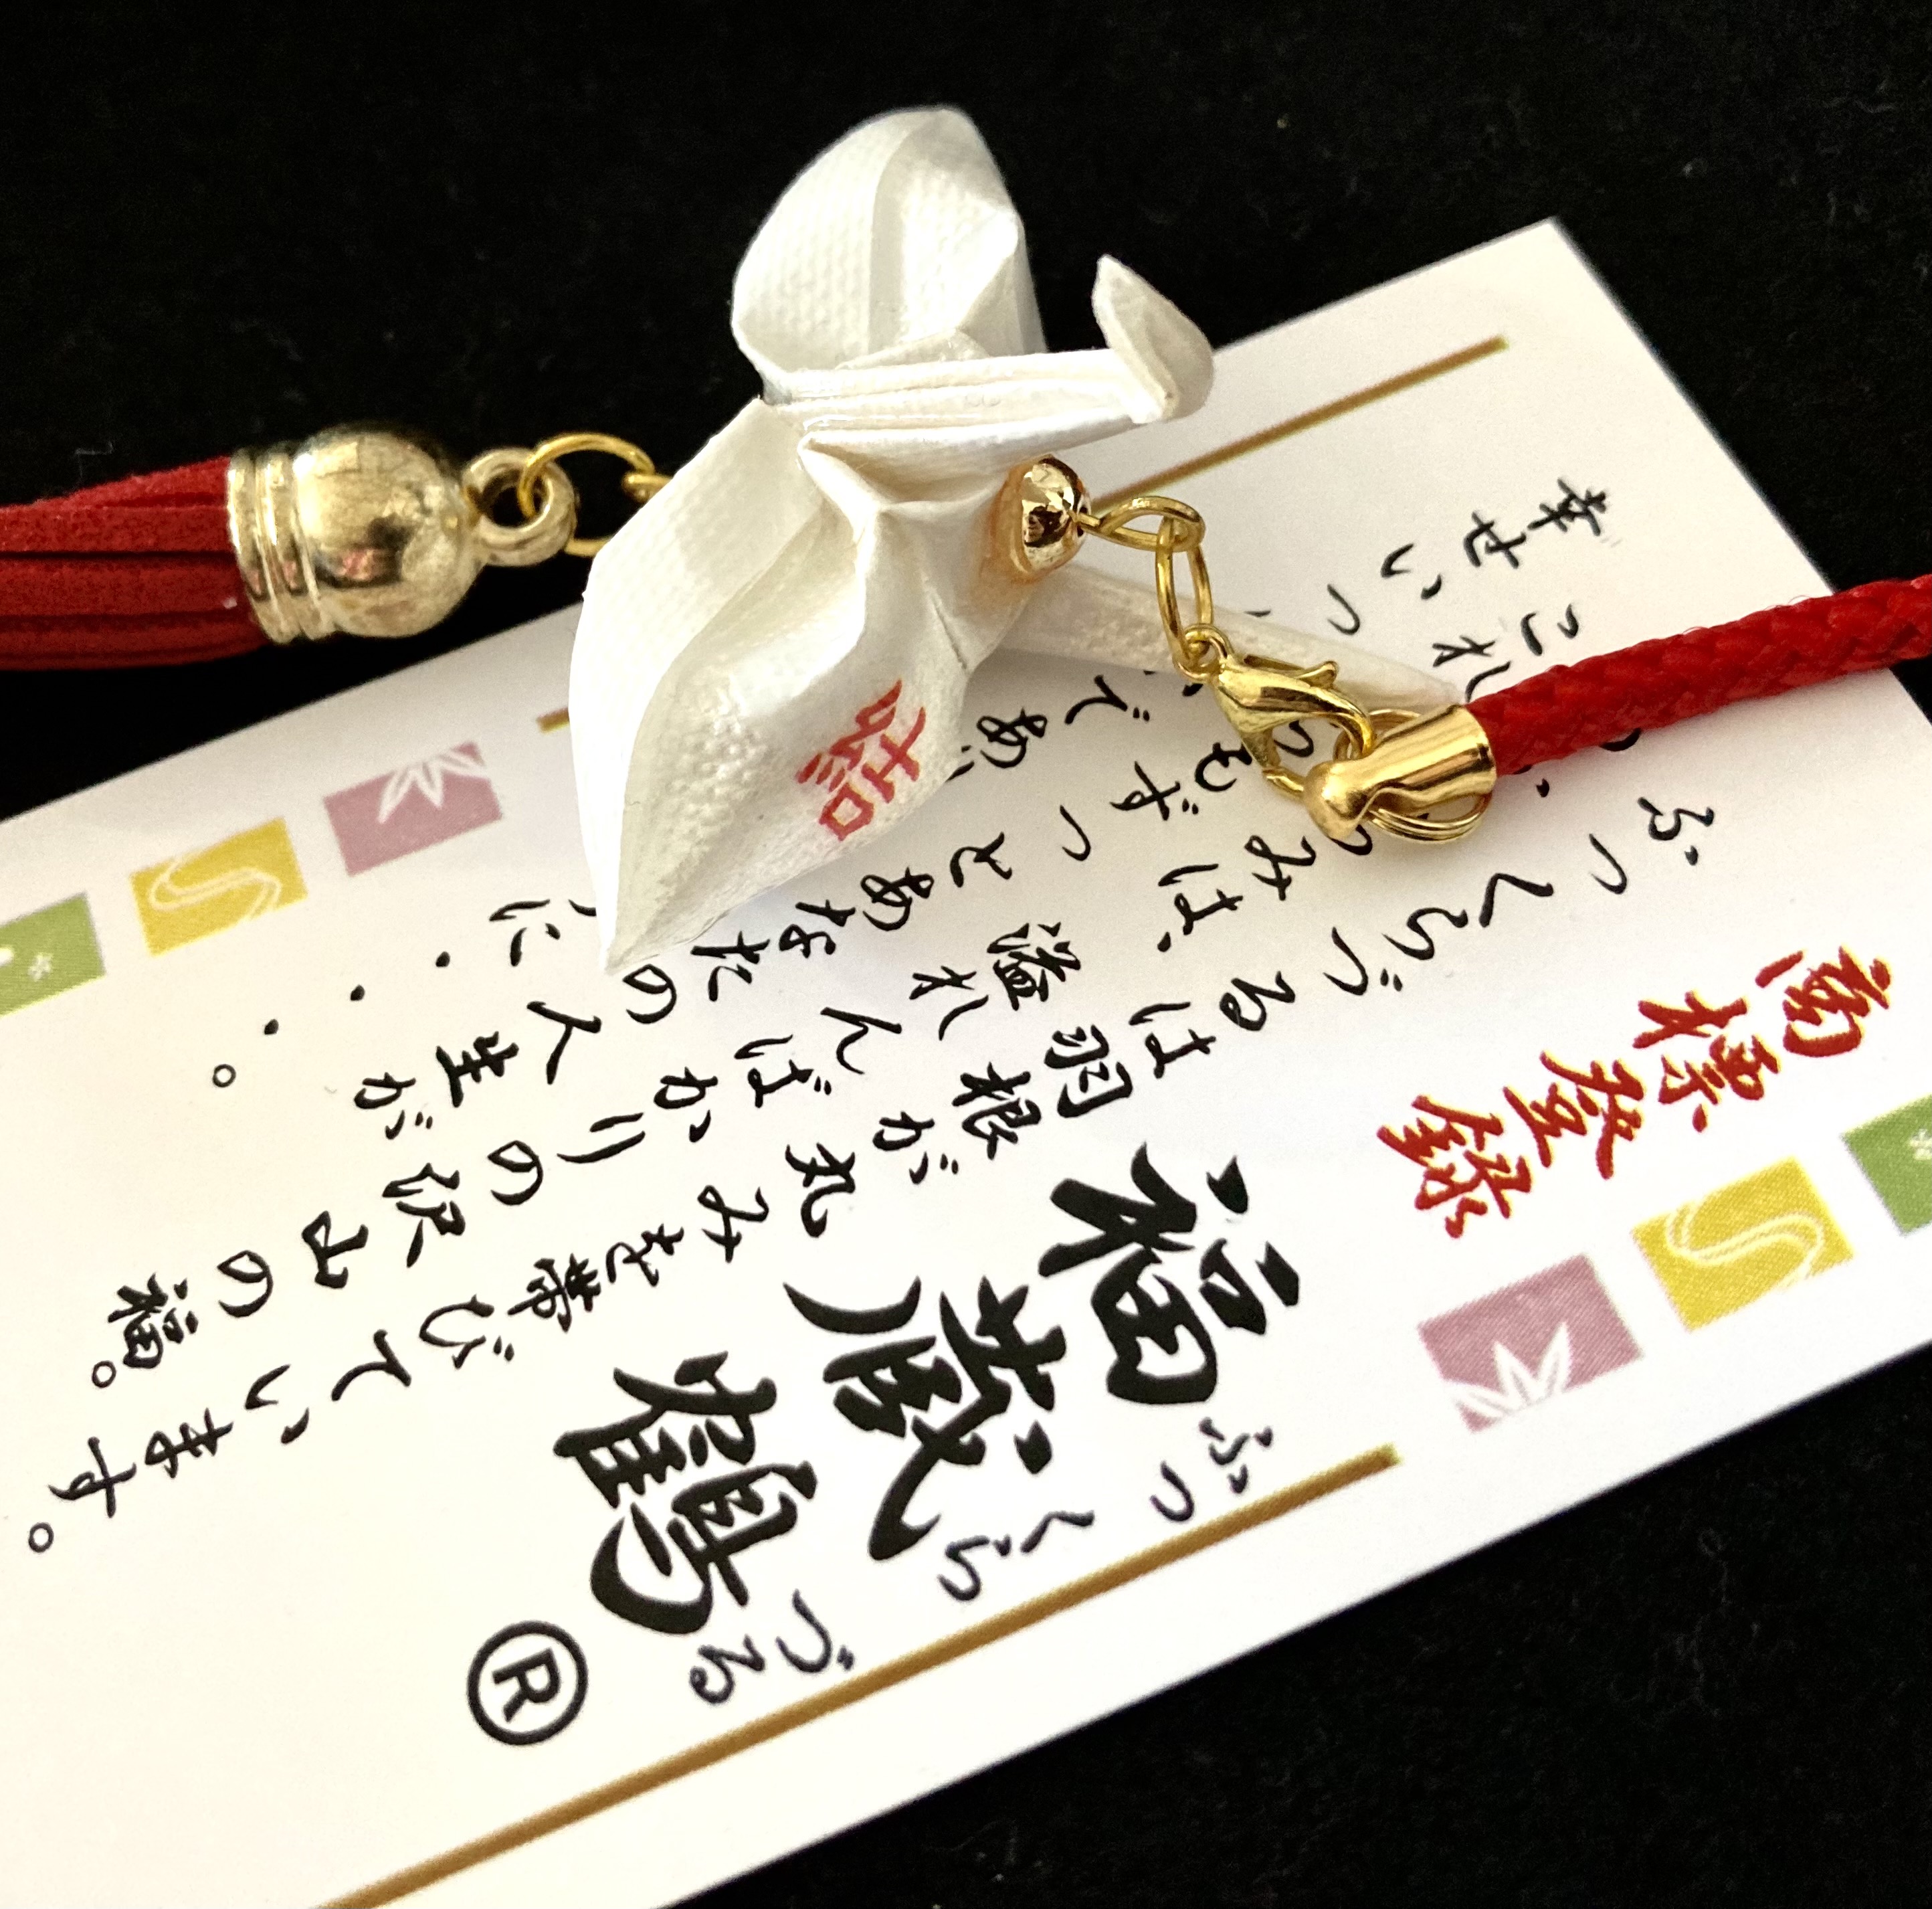 商標登録
福蔵鶴
ふっくらづる
®
ふっくらづるは羽根が丸みを帯びています。
みは、溢れんばかりの沢山の福。
これ もずっとあなたの人生が
幸せいっ であ に・・・。